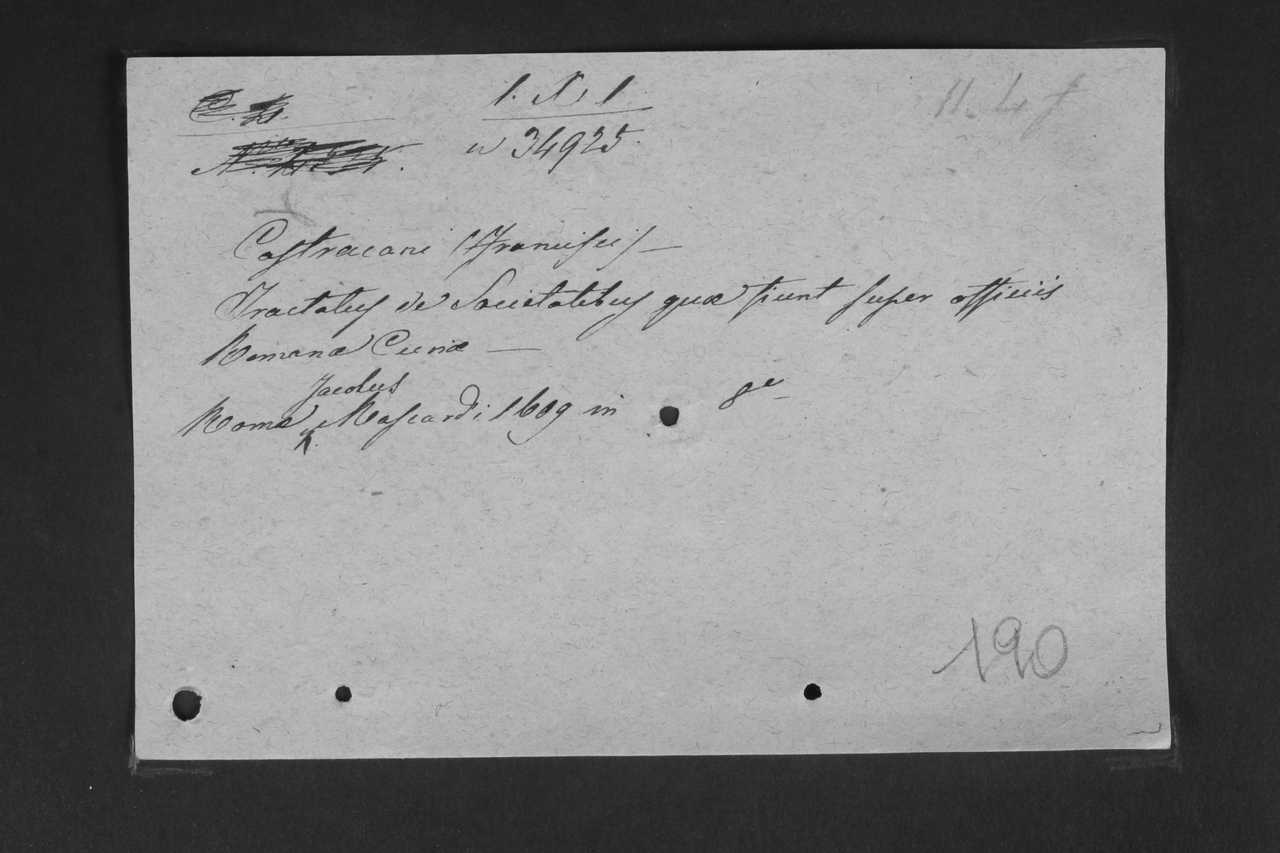 1. N. 1
n 34925.
11. 4 f
Castracani (Francisci) —
Tractatus de Societatibus quæ fiunt super officiis
Romanæ Curiæ —
Jacobus
Romæ Mascardi 1609 in 8º
190